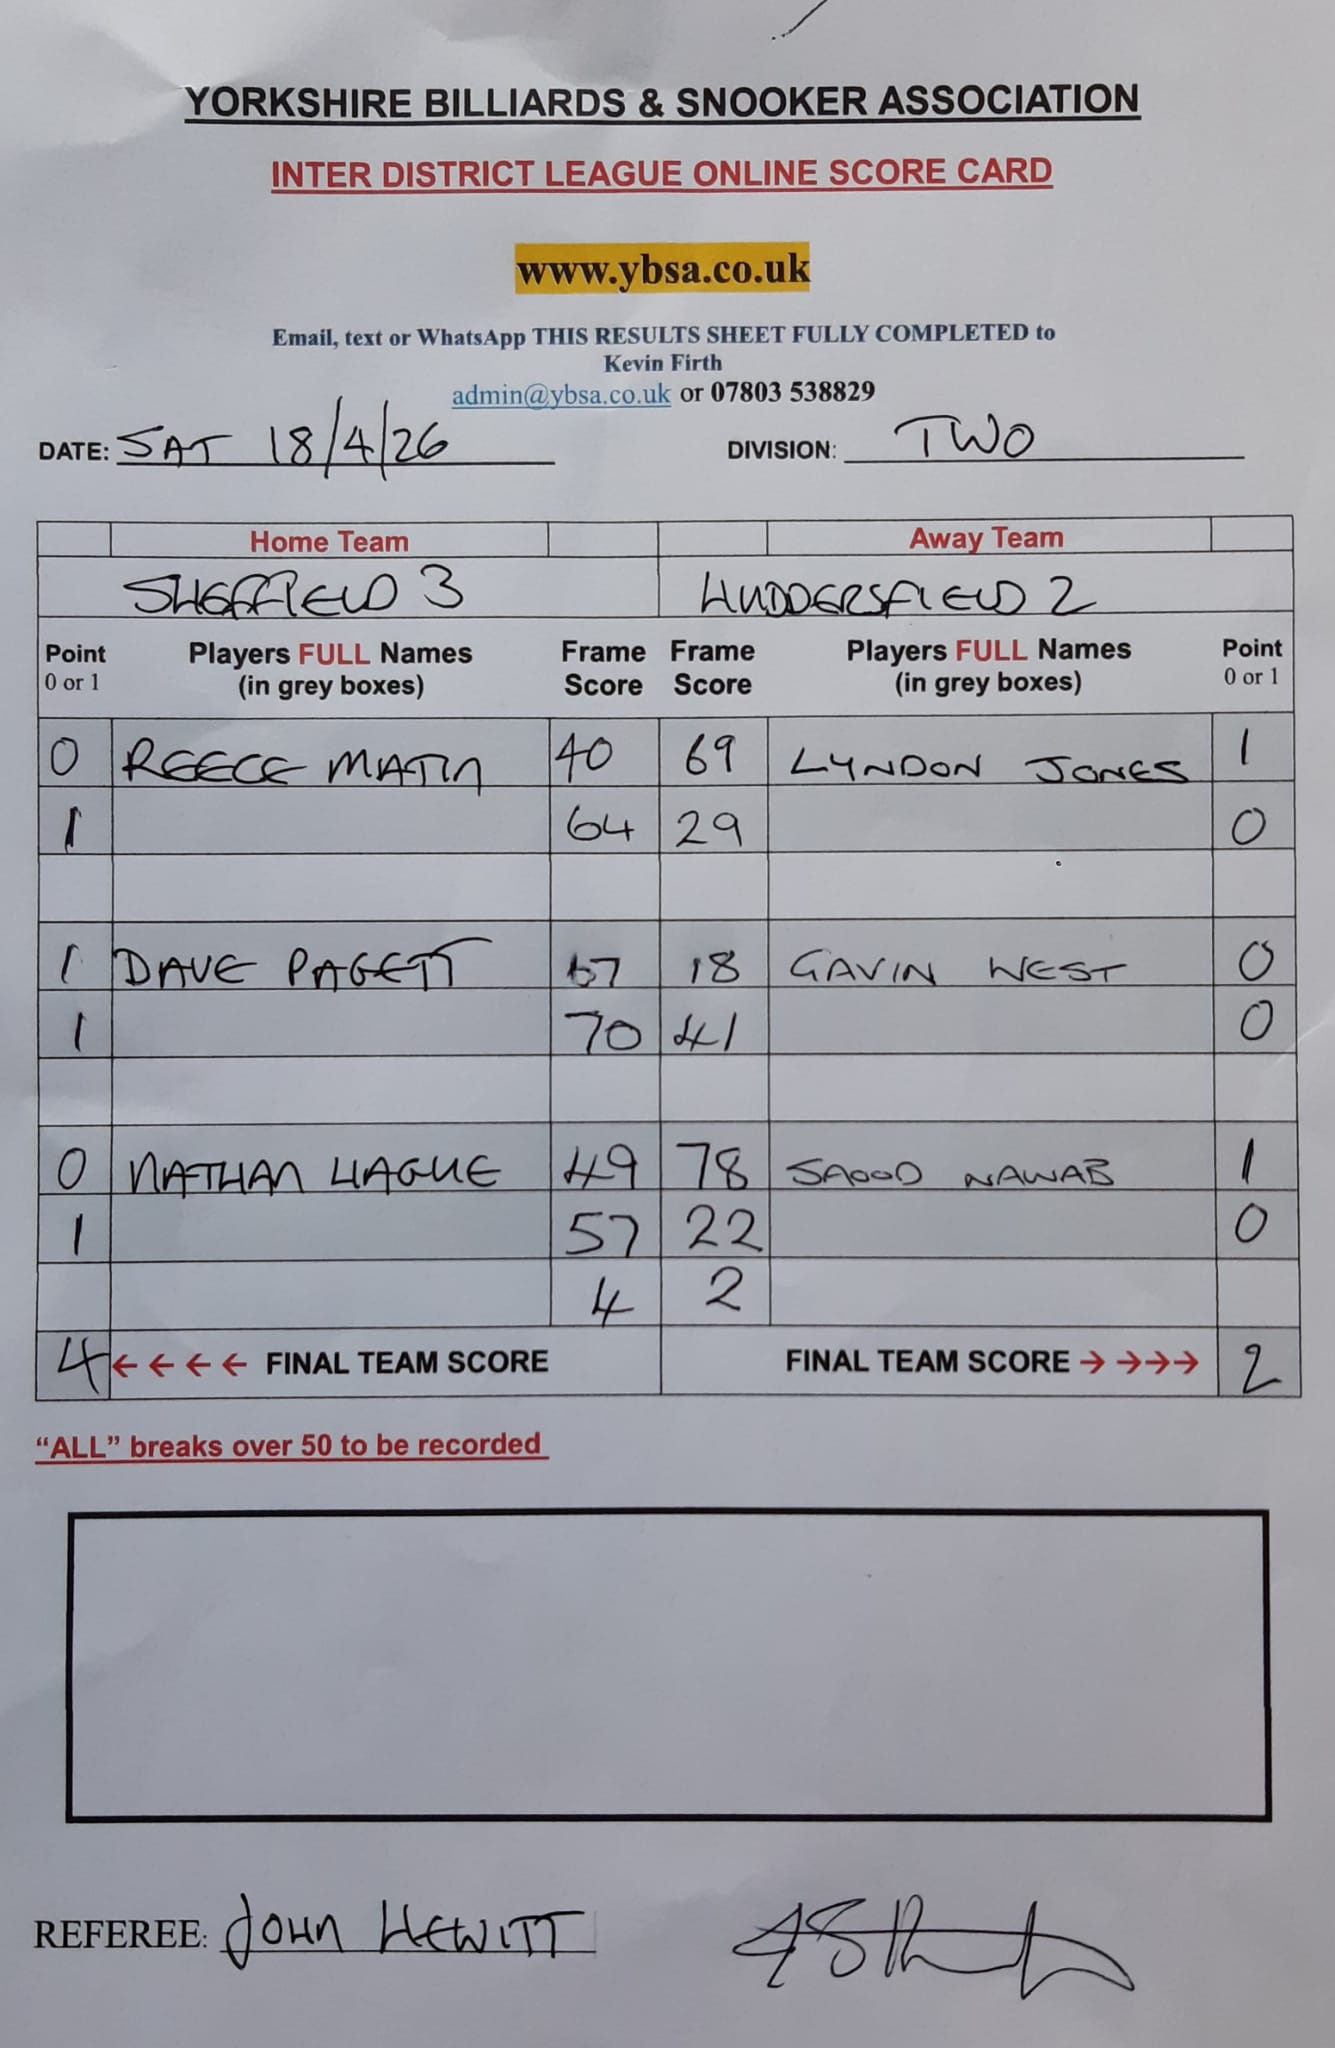 YORKSHIRE BILLIARDS & SNOOKER ASSOCIATION
INTER DISTRICT LEAGUE ONLINE SCORE CARD
www.ybsa.co.uk
Email, text or WhatsApp THIS RESULTS SHEET FULLY COMPLETED to
Kevin Firth
admin@ybsa.co.uk or 07803 538829
DATE: SAT 18/4/26 DIVISION: TWO
Home Team Away Team
SHEFFIELD 3 HUDDERSFIELD 2
Point Players FULL Names Frame Frame Players FULL Names Point
0 or 1 (in grey boxes) Score Score (in grey boxes) 0 or 1
0 REECE MATIN 40 69 LYNDON JONES 1
1 64 29 0
1 DAVE PAGETT 67 18 GAVIN WEST 0
1 70 41 0
0 NATHAN HAGUE 49 78 SAOOD NAWAB 1
1 57 22 0
4 2
4 ← ← ← ← FINAL TEAM SCORE FINAL TEAM SCORE → →→→ 2
“ALL” breaks over 50 to be recorded
REFEREE: JOHN HEWITT